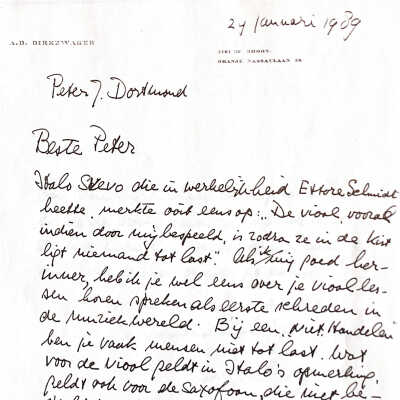 24 januari 1989
A.D. DIRKZWAGER
ORANJE NASSAULAAN
Peter J. Dortmund
Beste Peter
Italo Svevo die in werkelijkheid Ettore Schmidt
heette, merkte ooit eens op: "De viool, vooral
indien door mij bespeeld, is zodra ze in de kist
ligt niemand tot last". Als ik mij goed her-
inner, heb ik je wel eens over je vioolles-
sen horen spreken als eerste schreden in
de muziekwereld. Bij een niet handelen
ben je vaak mensen niet tot last. Wat
voor de viool geldt in Italo's opmerking,
geldt ook voor de saxofoon, die niet be-